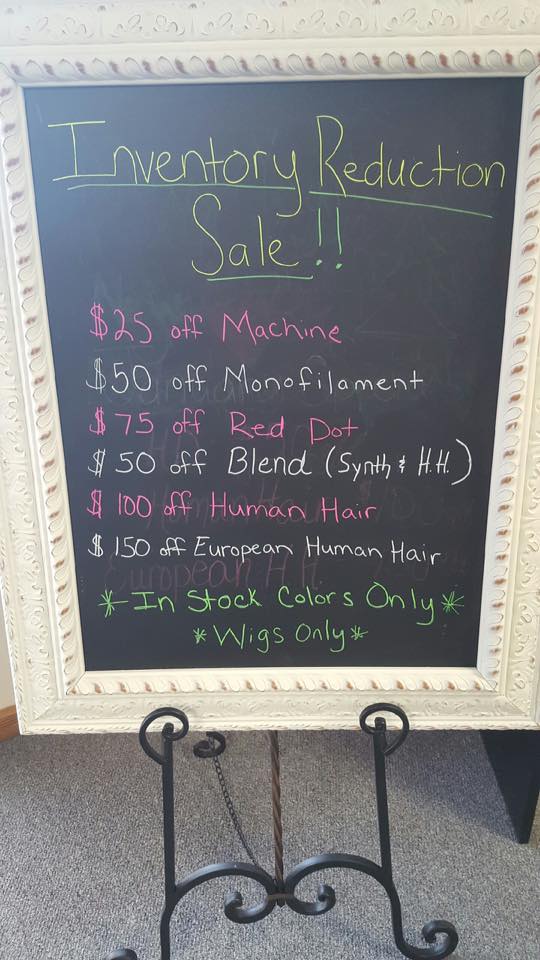 Inventory Reduction
Sale!!
$25 off Machine
$50 off Monofilament
$75 off Red Dot
$50 off Blend (Synth & H.H.)
$100 off Human Hair
$150 off European Human Hair
*In Stock Colors Only*
*Wigs Only*